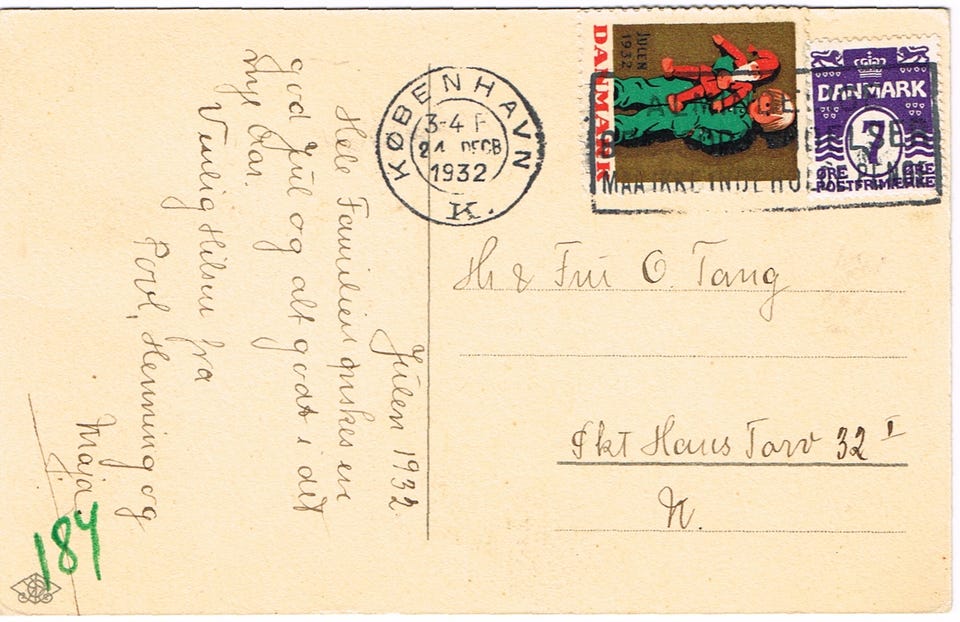 JULEN
1932
DANMARK
DANMARK
7
ØRE ØRE
POSTFRIMÆRKE
MAA IKKE INDEHOLDE PENGE
KØBENHAVN
3-4 F
DECB
1932
K.
Julen 1932.
Hele Familien ønskes en
god Jul og alt godt i det
nye Aar.
Venlig Hilsen fra
Povl, Henning og
Maja.
Hr & Fru O. Tang
Skt Hans Torv 32 I
N.
184